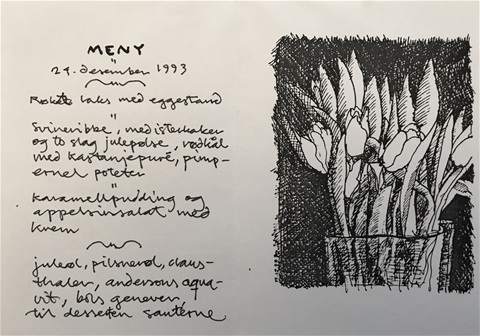 MENY
24. desember 1993
Røkte laks med eggestand
Svineribbe, medisterkaker
og to slag julepølse, rødkål
med kastanjepuré, pimp-
ernel poteter
Karamellpudding og
appelsinsalat med
krem
juleøl, pilsnerøl, claus-
thaler, andersons aqua-
vit, bols genever,
til desserten sauterne